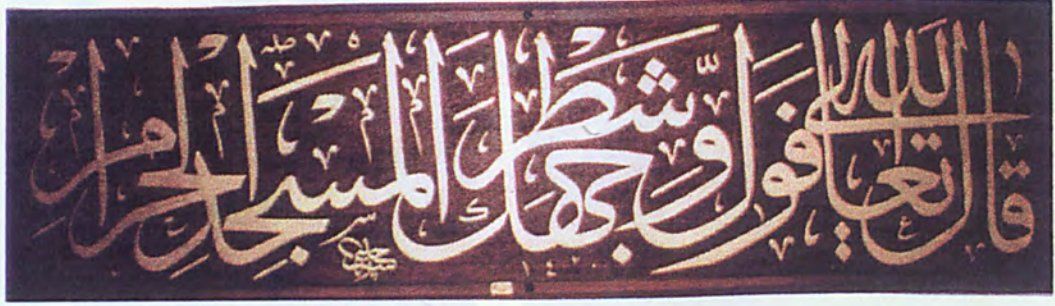 قال الله تعالى فول وجهك شطر المسجد الحرام
١٤٢٠